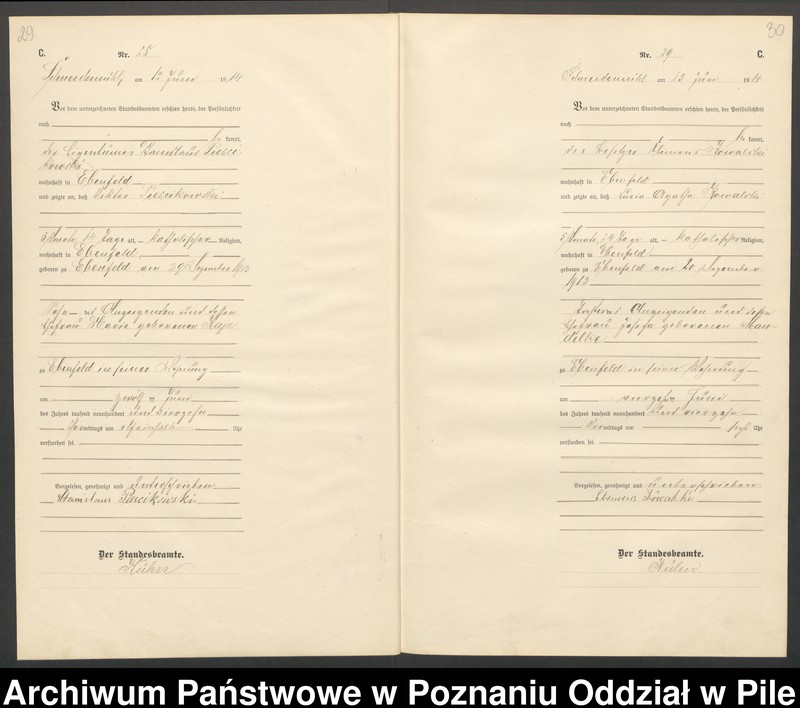 29
C.
Nr. 28
Schneidemühl, am 12 Juni 1914
Vor dem unterzeichneten Standesbeamten erschien heute, der Persönlichkeit
nach
kannt,
der Eigentümer Stanislaus
wohnhaft in Ebenfeld
und zeigte an, daß Viktor
5 Monate, 14 Tage alt, katholischer Religion,
wohnhaft in Ebenfeld
geboren zu Ebenfeld am 29 Dezember 1913
Sohn des Anzeigenden und dessen
Ehefrau Maria geborenen
zu Ebenfeld in seiner Wohnung
am zwölf Juni
des Jahres tausend neunhundert und vierzehn
Vormittags um Uhr
verstorben sei.
Vorgelesen, genehmigt und unterschrieben
Stanislaus
Der Standesbeamte.
Kühn
30
Nr. 29 C.
Schneidemühl am Juni 1914
Vor dem unterzeichneten Standesbeamten erschien heute, der Persönlichkeit
nach
kannt,
der Besitzer Klemens Kowalski
wohnhaft in Ebenfeld
und zeigte an, daß Lucia Agatha Kowalski
5 Monate, 24 Tage alt, katholischer Religion,
wohnhaft in Ebenfeld
geboren zu Ebenfeld am 20 Dezember
1913
Tochter des Anzeigenden und dessen
Ehefrau Josefa geborenen
zu Ebenfeld in seiner Wohnung
am vierzehn Juni
des Jahres tausend neunhundert und vierzehn
Vormittags um Uhr
verstorben sei.
Vorgelesen, genehmigt und unterschrieben
Klemens Kowalski
Der Standesbeamte.
Archiwum Państwowe w Poznaniu Oddział w Pile